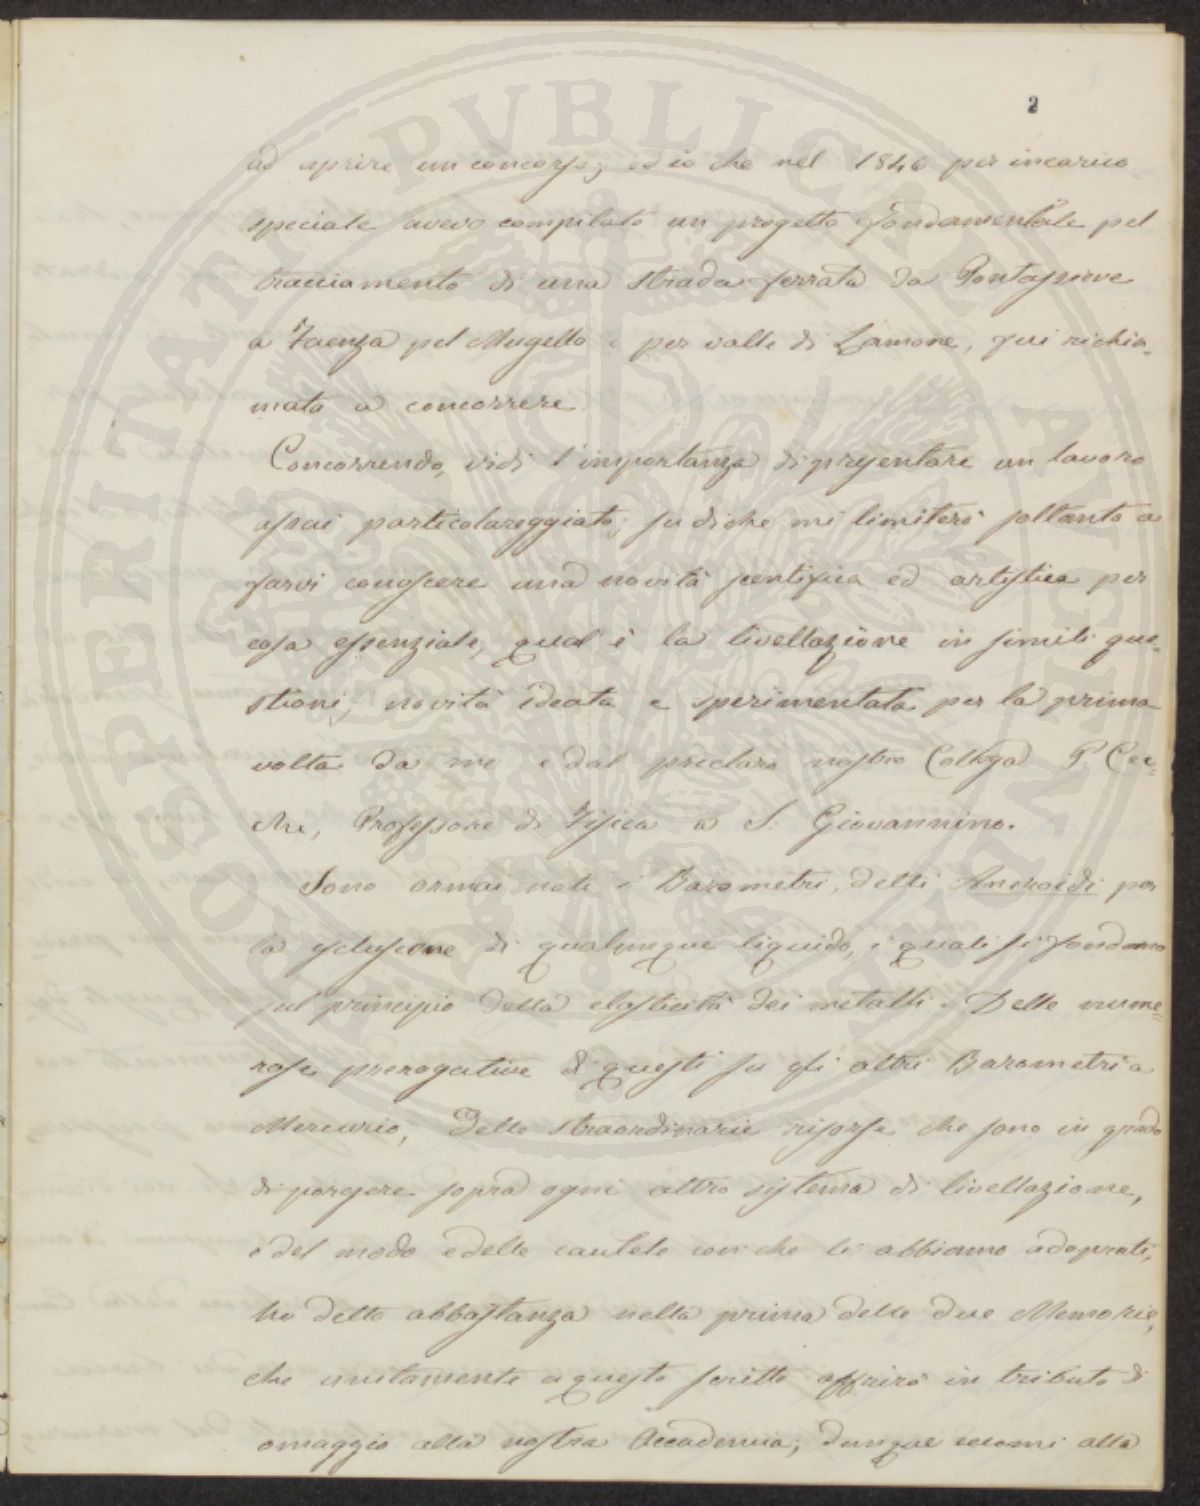 2
ad aprire un concorso; ed io che nel 1846 per incarico
speciale avevo compilato un progetto fondamentale pel
tracciamento di una strada ferrata da Pontassieve
a Faenza pel Mugello e per valle di Lamone, fui richia=
mato a concorrere.
Concorrendo, vidi l'importanza di presentare un lavoro
assai particolareggiato; su di che mi limiterò soltanto a
farvi conoscere una novità scentifica ed artistica per
cosa essenziale, qual'è la livellazione in simili que=
stioni; novità ideata e sperimentata per la prima
volta da me e dal preclaro nostro Collega P. Cec=
chi, Professore di Fisica a S. Giovannino.
Sono ormai noti i Barometri, detti Aneroidi per
la esclusione di qualunque liquido, i quali si fondano
sul principio della elasticità dei metalli. Delle nume=
rose prerogative di questi su gli altri Barometri a
Mercurio, delle straordinarie risorse che sono in grado
di porgere sopra ogni altro sistema di livellazione,
e del modo e delle cautele con che li abbiamo adoprati,
ho detto abbastanza nella prima delle due Memorie,
che unitamente a questo scritto offrirò in tributo di
omaggio alla nostra Accademia; dunque eccomi alla
PROSPERITATI PUBLICAE AUGENDAE